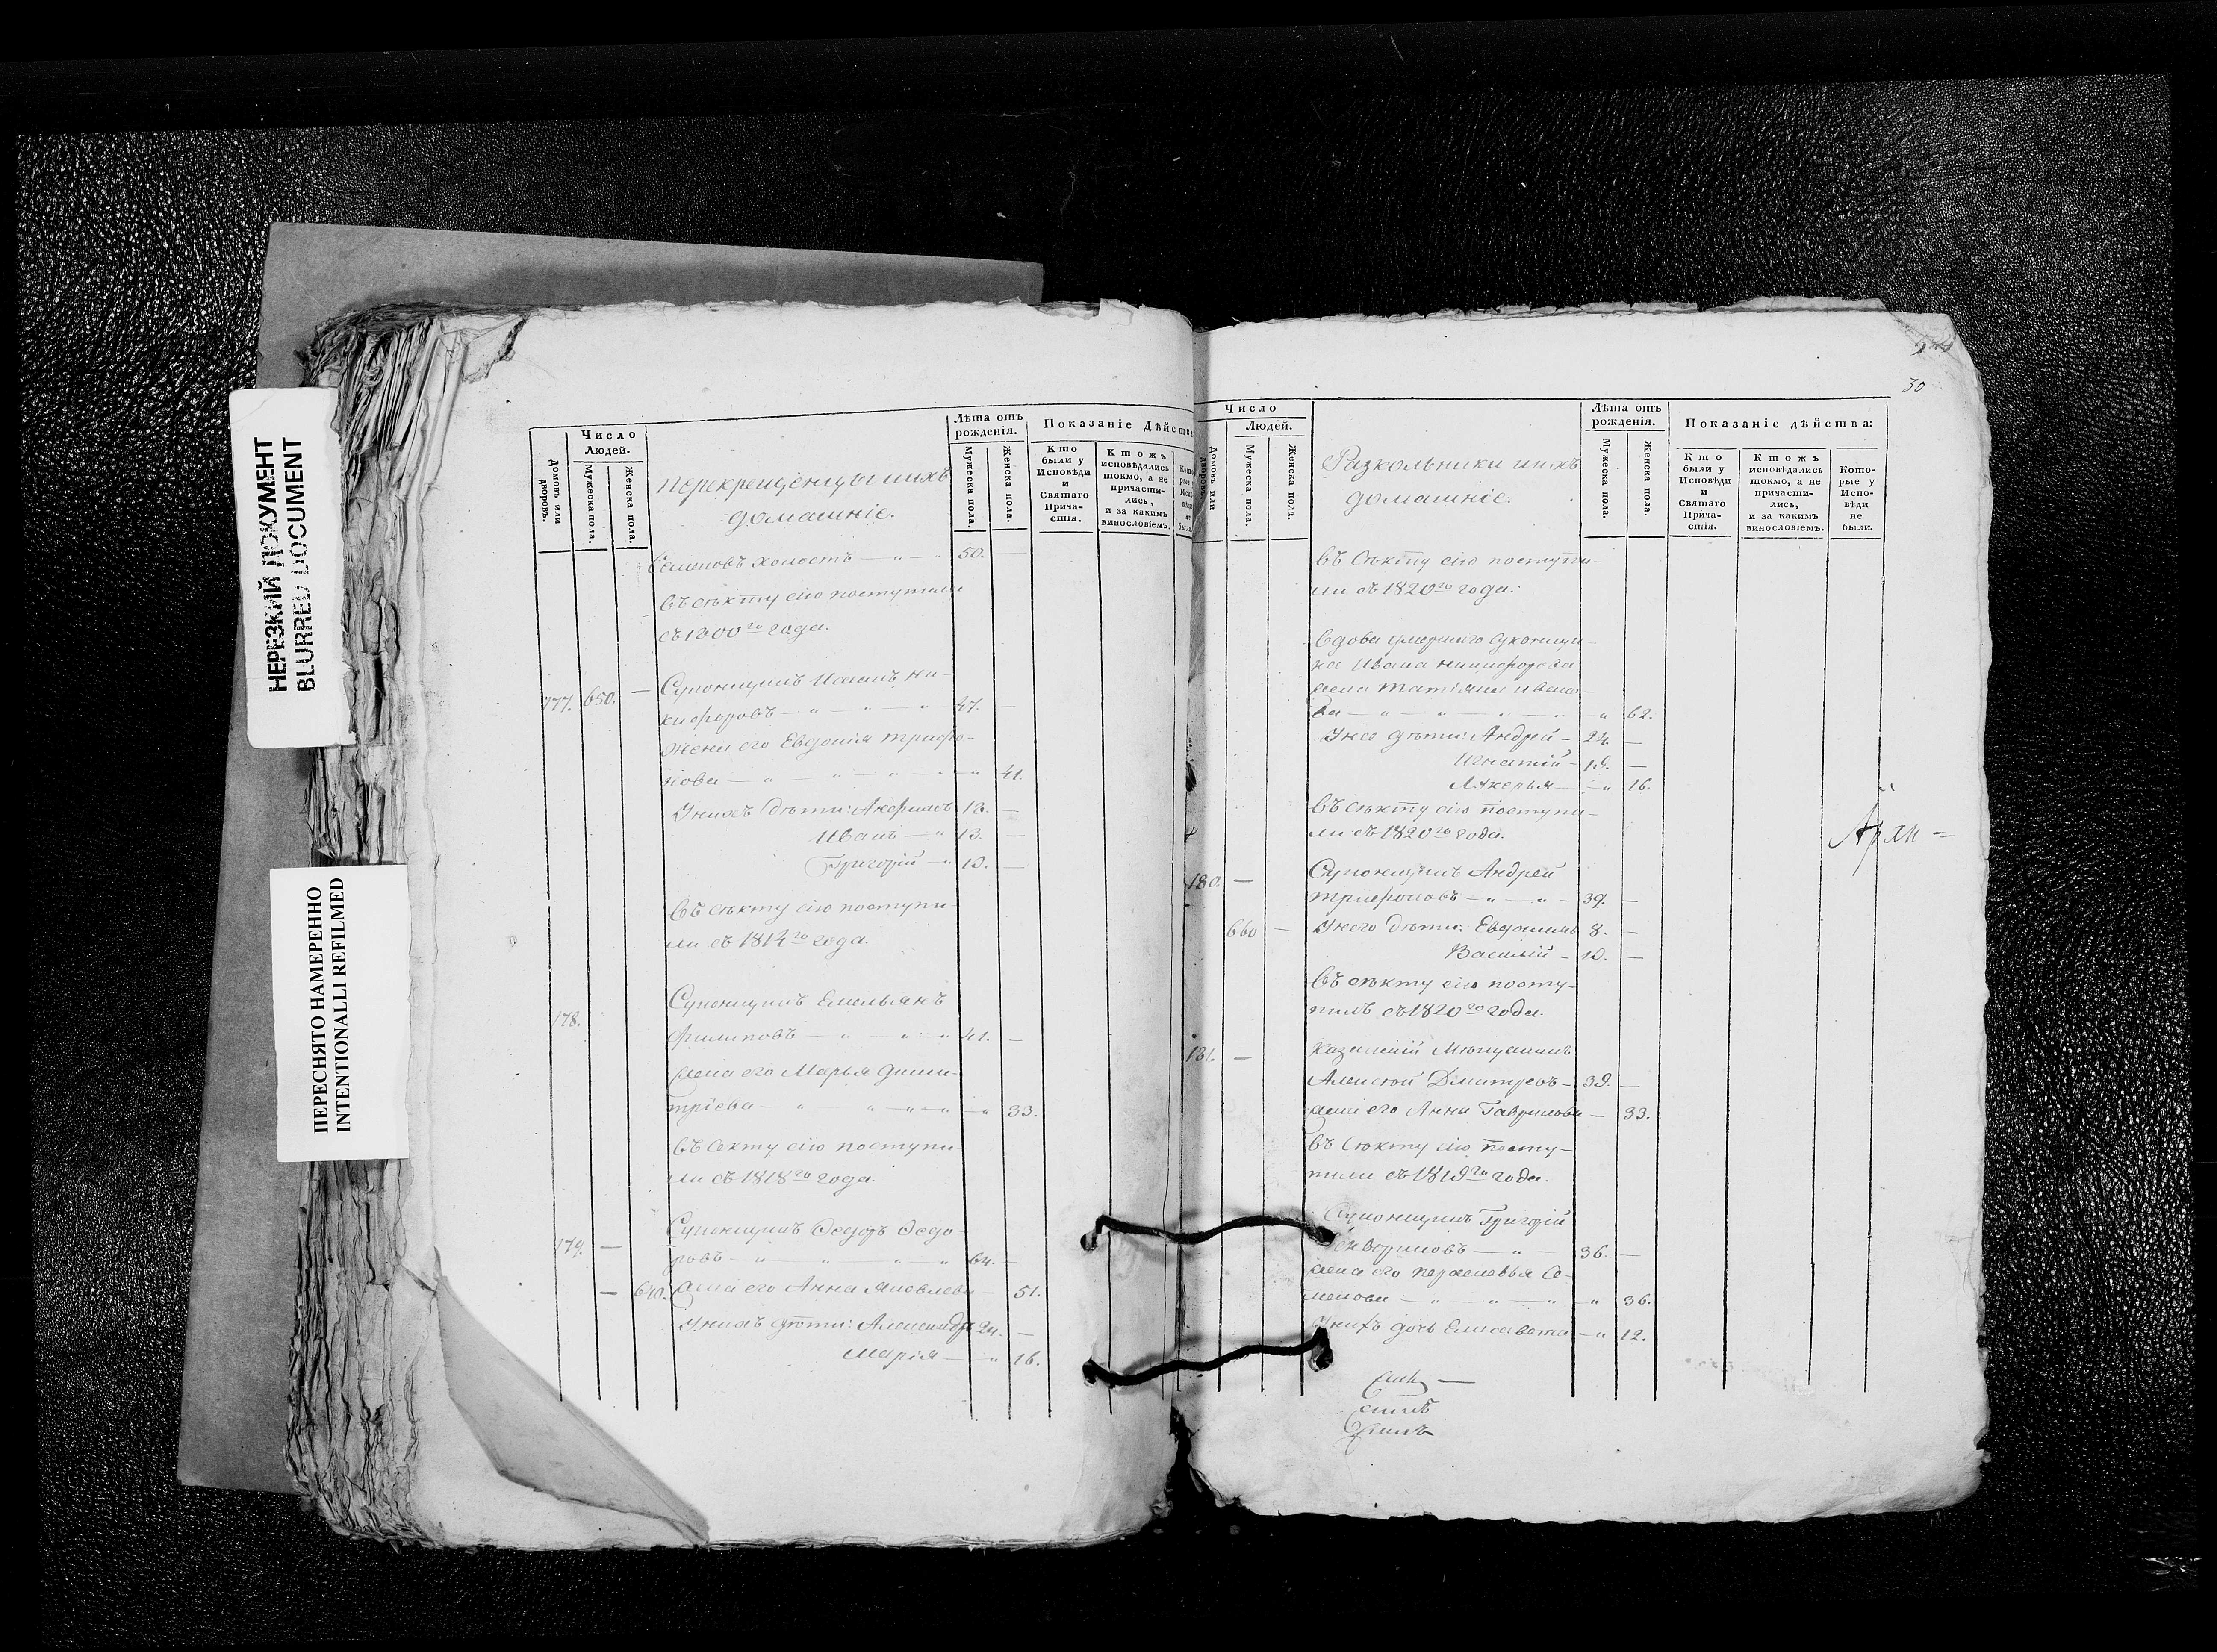 НЕРЕЗКИЙ ДОКУМЕНТ
BLURRED DOCUMENT
ПЕРЕСНЯТО НАМЕРЕННО
INTENTIONALLI REFILMED
Домовъ или дворовъ.
Число
Людей.
Мужеска пола.
Женска пола.
Перекрещенцы и ихъ
домашніе.
Лѣта отъ
рожденія.
Мужеска пола.
Женска пола.
Показаніе Дѣйства
Кто
были у
Исповѣди
и
Святаго
Прича-
стія.
Ктожъ
исповѣдались
токмо, а не
причасти-
лись,
и за какимъ
винословіемъ.
Семеновъ холостъ — " — 50. —
Въ сѣкту сію поступили
съ 1800го года.
777. 650. — Суконщикъ Иванъ Ни-
кифоровъ — " — " — " — 47. —
Жена его Евдокія Трифо-
нова — " — " — " — " 41.
У нихъ дѣти:
Иванъ — " 13. —
Григорій — " 10. —
Въ сѣкту сію поступи-
ли съ 1814го года.
178. Суконщикъ Емельянъ
Филиповъ — " — " — " 41. —
жена его Марья Дими-
тріева — " — " — " — " 33.
Въ секту сію поступи
ли съ 1818го года.
179. — Суконщикъ Ѳедоръ Ѳедо-
ровъ — " — " — " — " 64. —
— 640. жена его Анна Яковлева — 51.
У нихъ дѣти: Александръ 24. —
Марія — " 16.
30
Домовъ или дворовъ.
Число
Людей.
Мужеска пола.
Женска пола.
Разкольники и ихъ
домашніе.
Лѣта отъ
рожденія.
Мужеска пола.
Женска пола.
Показаніе дѣйства:
Кто
были у
Исповѣди
и
Святаго
Прича-
стія.
Ктожъ
исповѣдались
токмо, а не
причасти-
лись,
и за какимъ
винословіемъ.
Кото-
рые у
Испо-
вѣди
не
были.
Въ сѣкту сію поступи-
ли съ 1820го года.
Вдова умершаго суконщи-
ка Ивана Никифорова
жена Татіяна Ивано-
ва — " — " — " — " 62.
У нея дѣти: Андрей — 24. —
Игнатій — 19. —
Лукерья — " 16.
Въ сѣкту сію поступи-
ли съ 1820го года.
180. — Суконщикъ Андрей
Трифоновъ — " — " — 39. —
660 — У него дѣти: Евдокимъ 8. —
Василій — 10. —
Въ сѣкту сію посту-
пилъ съ 1820го года.
181. — Казанскій Мѣщанинъ
Алексѣй Дмитревъ — 39. —
жена его Анна Гаврилова — 33.
Въ сѣкту сію посту-
пили съ 1819го года.
Суконщикъ Григорій
— " — 36. —
жена его Парасковья Се-
менова — " — " — " — " 36.
У нихъ дочь Елисавета — " 12.